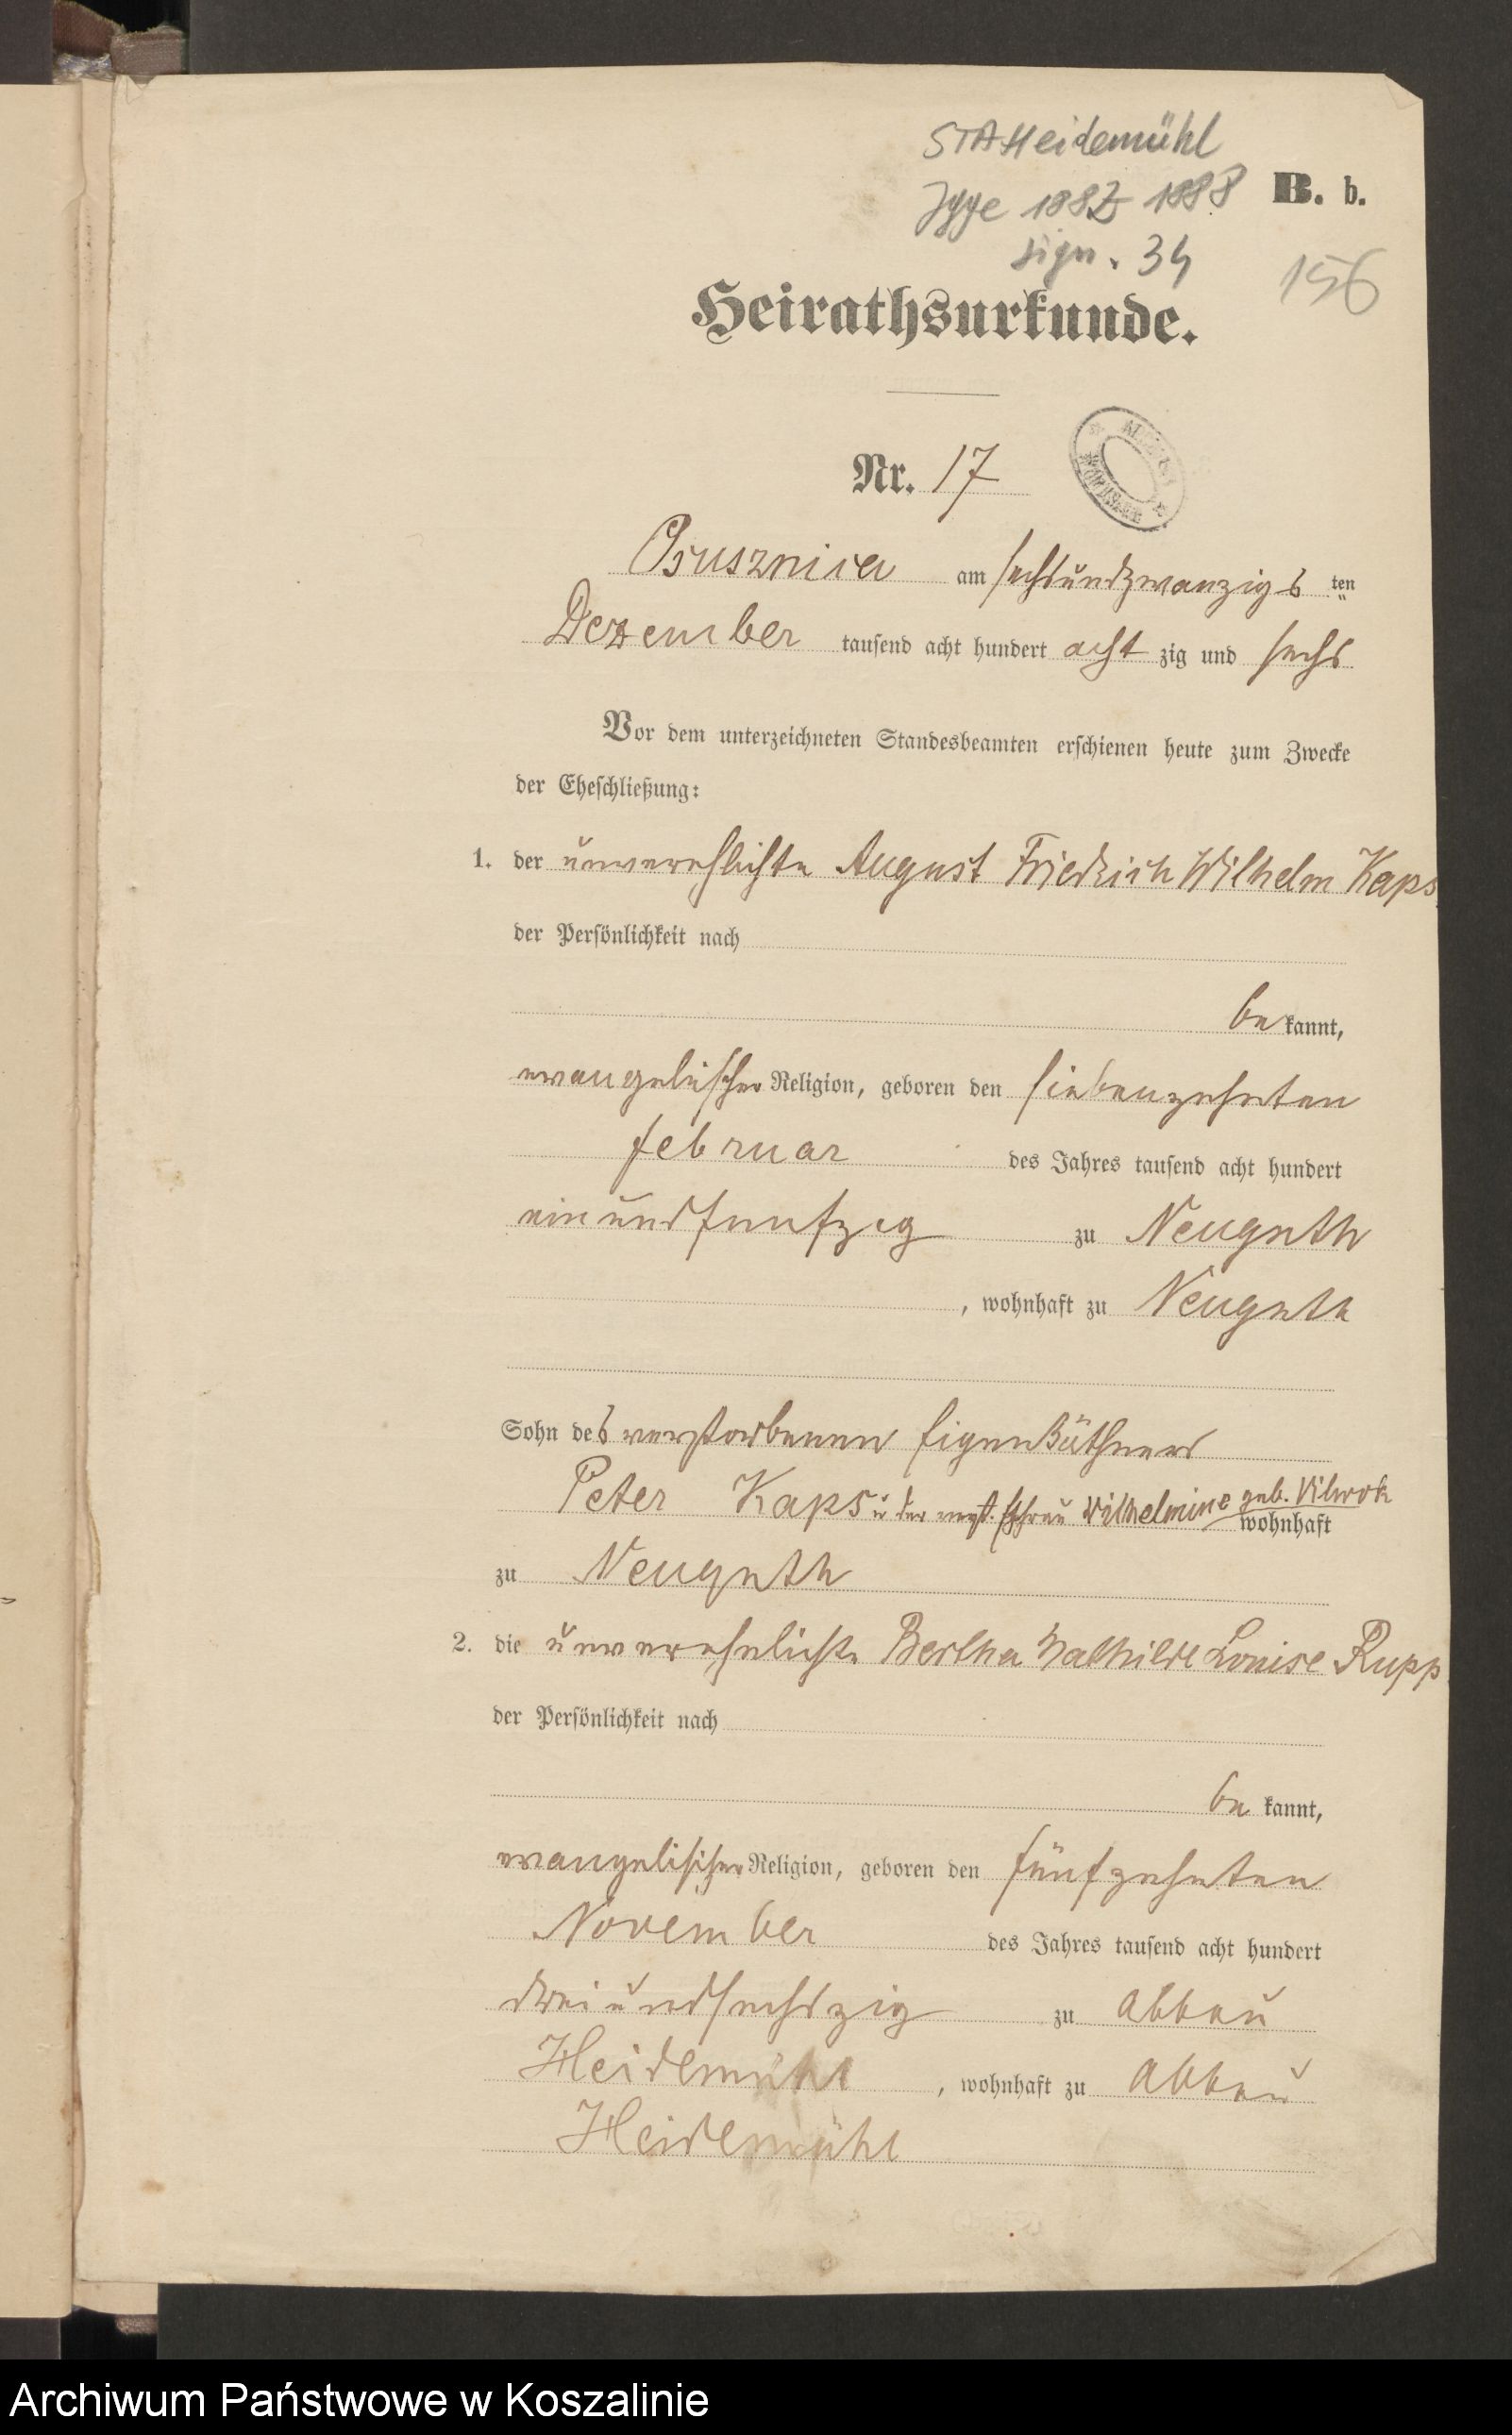 STA Heidemühl
Jgge 1882-1888
sign. 34
B. b.
156
Heirathsurkunde.
Nr. 17
am sechsundzwanzigs ten
Dezember tausend acht hundert acht zig und sechs
Vor dem unterzeichneten Standesbeamten erschienen heute zum Zwecke
der Eheschließung:
1. der unverehlichte August Friedrich Wilhelm Kaps
der Persönlichkeit nach
be kannt,
evangelischer Religion, geboren den siebenzehnten
Februar des Jahres tausend acht hundert
einundfunfzig zu Neuguth
, wohnhaft zu Neuguth
Sohn des verstorbenen Eigenkäthners
Peter Kaps u der verst. Ehefrau Wilhelmine geb.
wohnhaft
zu Neuguth
2. die unverehelichte Bertha Mathilde Louise Rupp
der Persönlichkeit nach
be kannt,
evangelischer Religion, geboren den fünfzehnten
November des Jahres tausend acht hundert
dreiundsechszig zu Abbau
Heidemühl , wohnhaft zu Abbau
Heidemühl
Archiwum Państwowe w Koszalinie